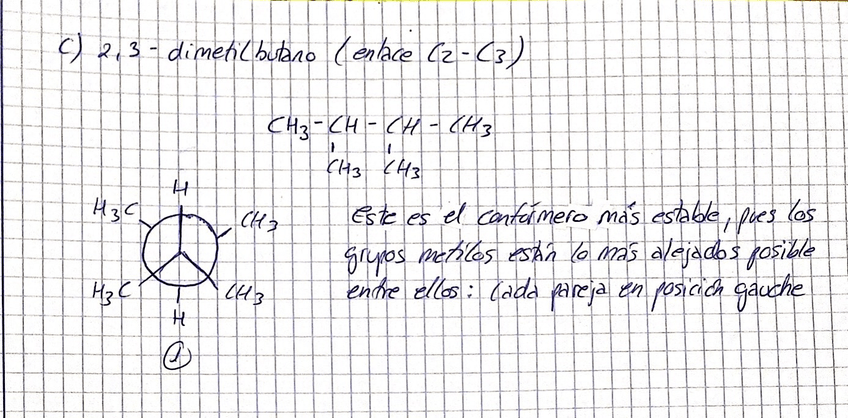 c) 2,3-dimetilbutano (enlace C2-C3)
CH3-CH-CH-CH3
CH3 CH3
H
H3C CH3
H3C CH3
H
1
Este es el confórmero más estable, pues los
grupos metilos están lo más alejados posible
entre ellos: Cada pareja en posición gauche